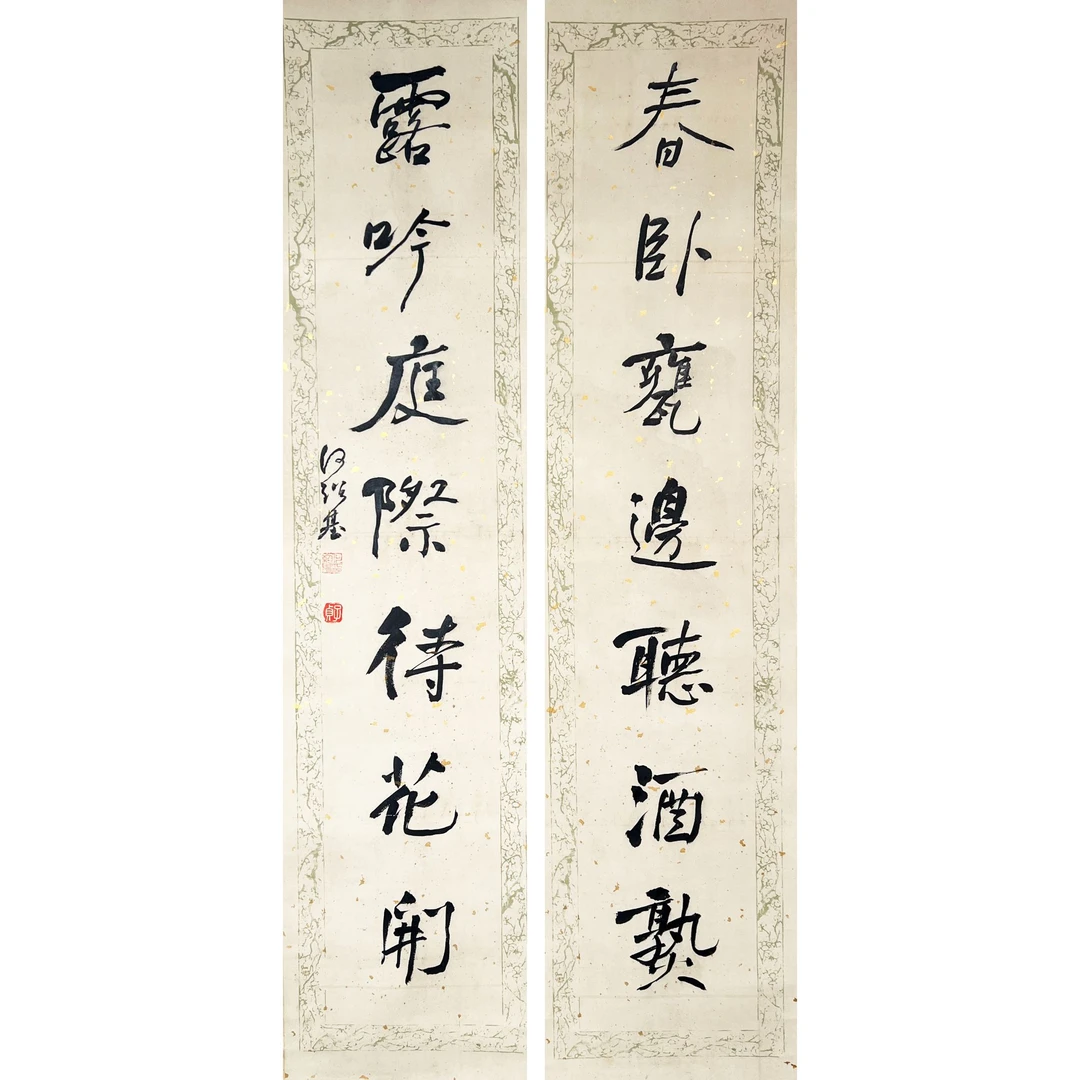 春卧甕邊聽酒熟
露吟庭際待花開
何紹基
子貞